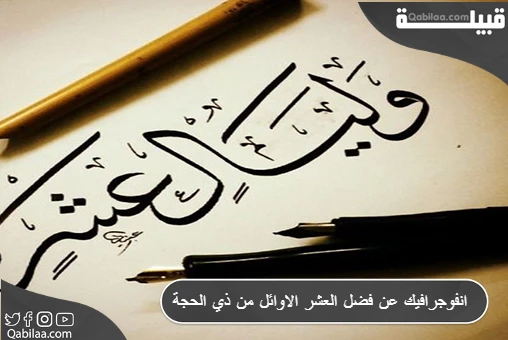 قبيلة
Qabilaa.com
وليال عشر
انفوجرافيك عن فضل العشر الاوائل من ذي الحجة
Qabilaa.com